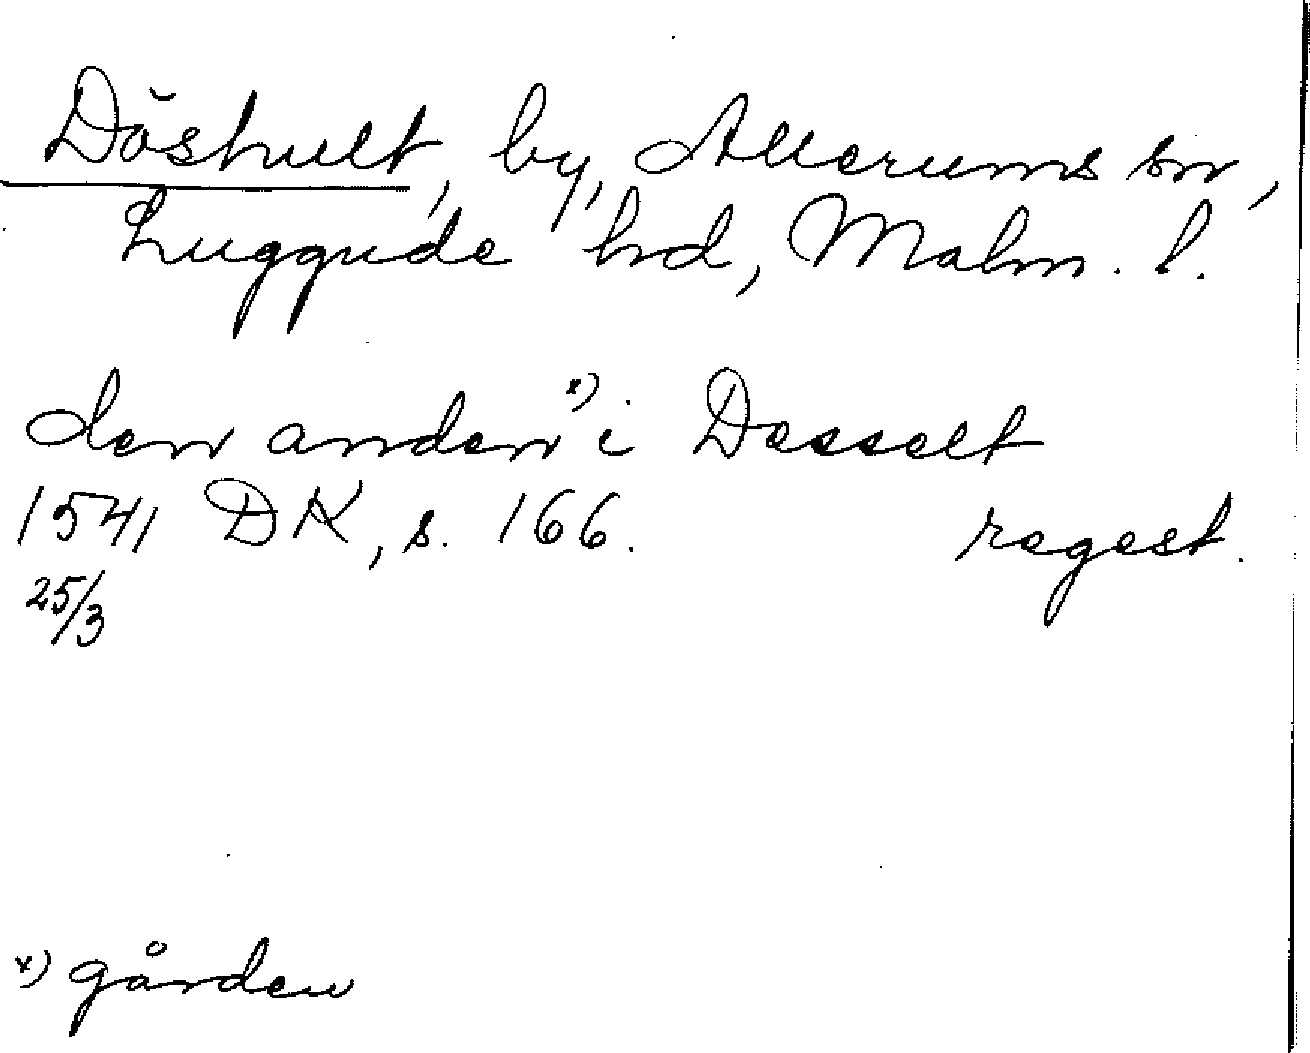 Döshult, by, Allerums sn,
Luggude hd, Malm. l.
den anden x) i Desselt
1541 DK, s. 166. regest.
25/3
x) gården